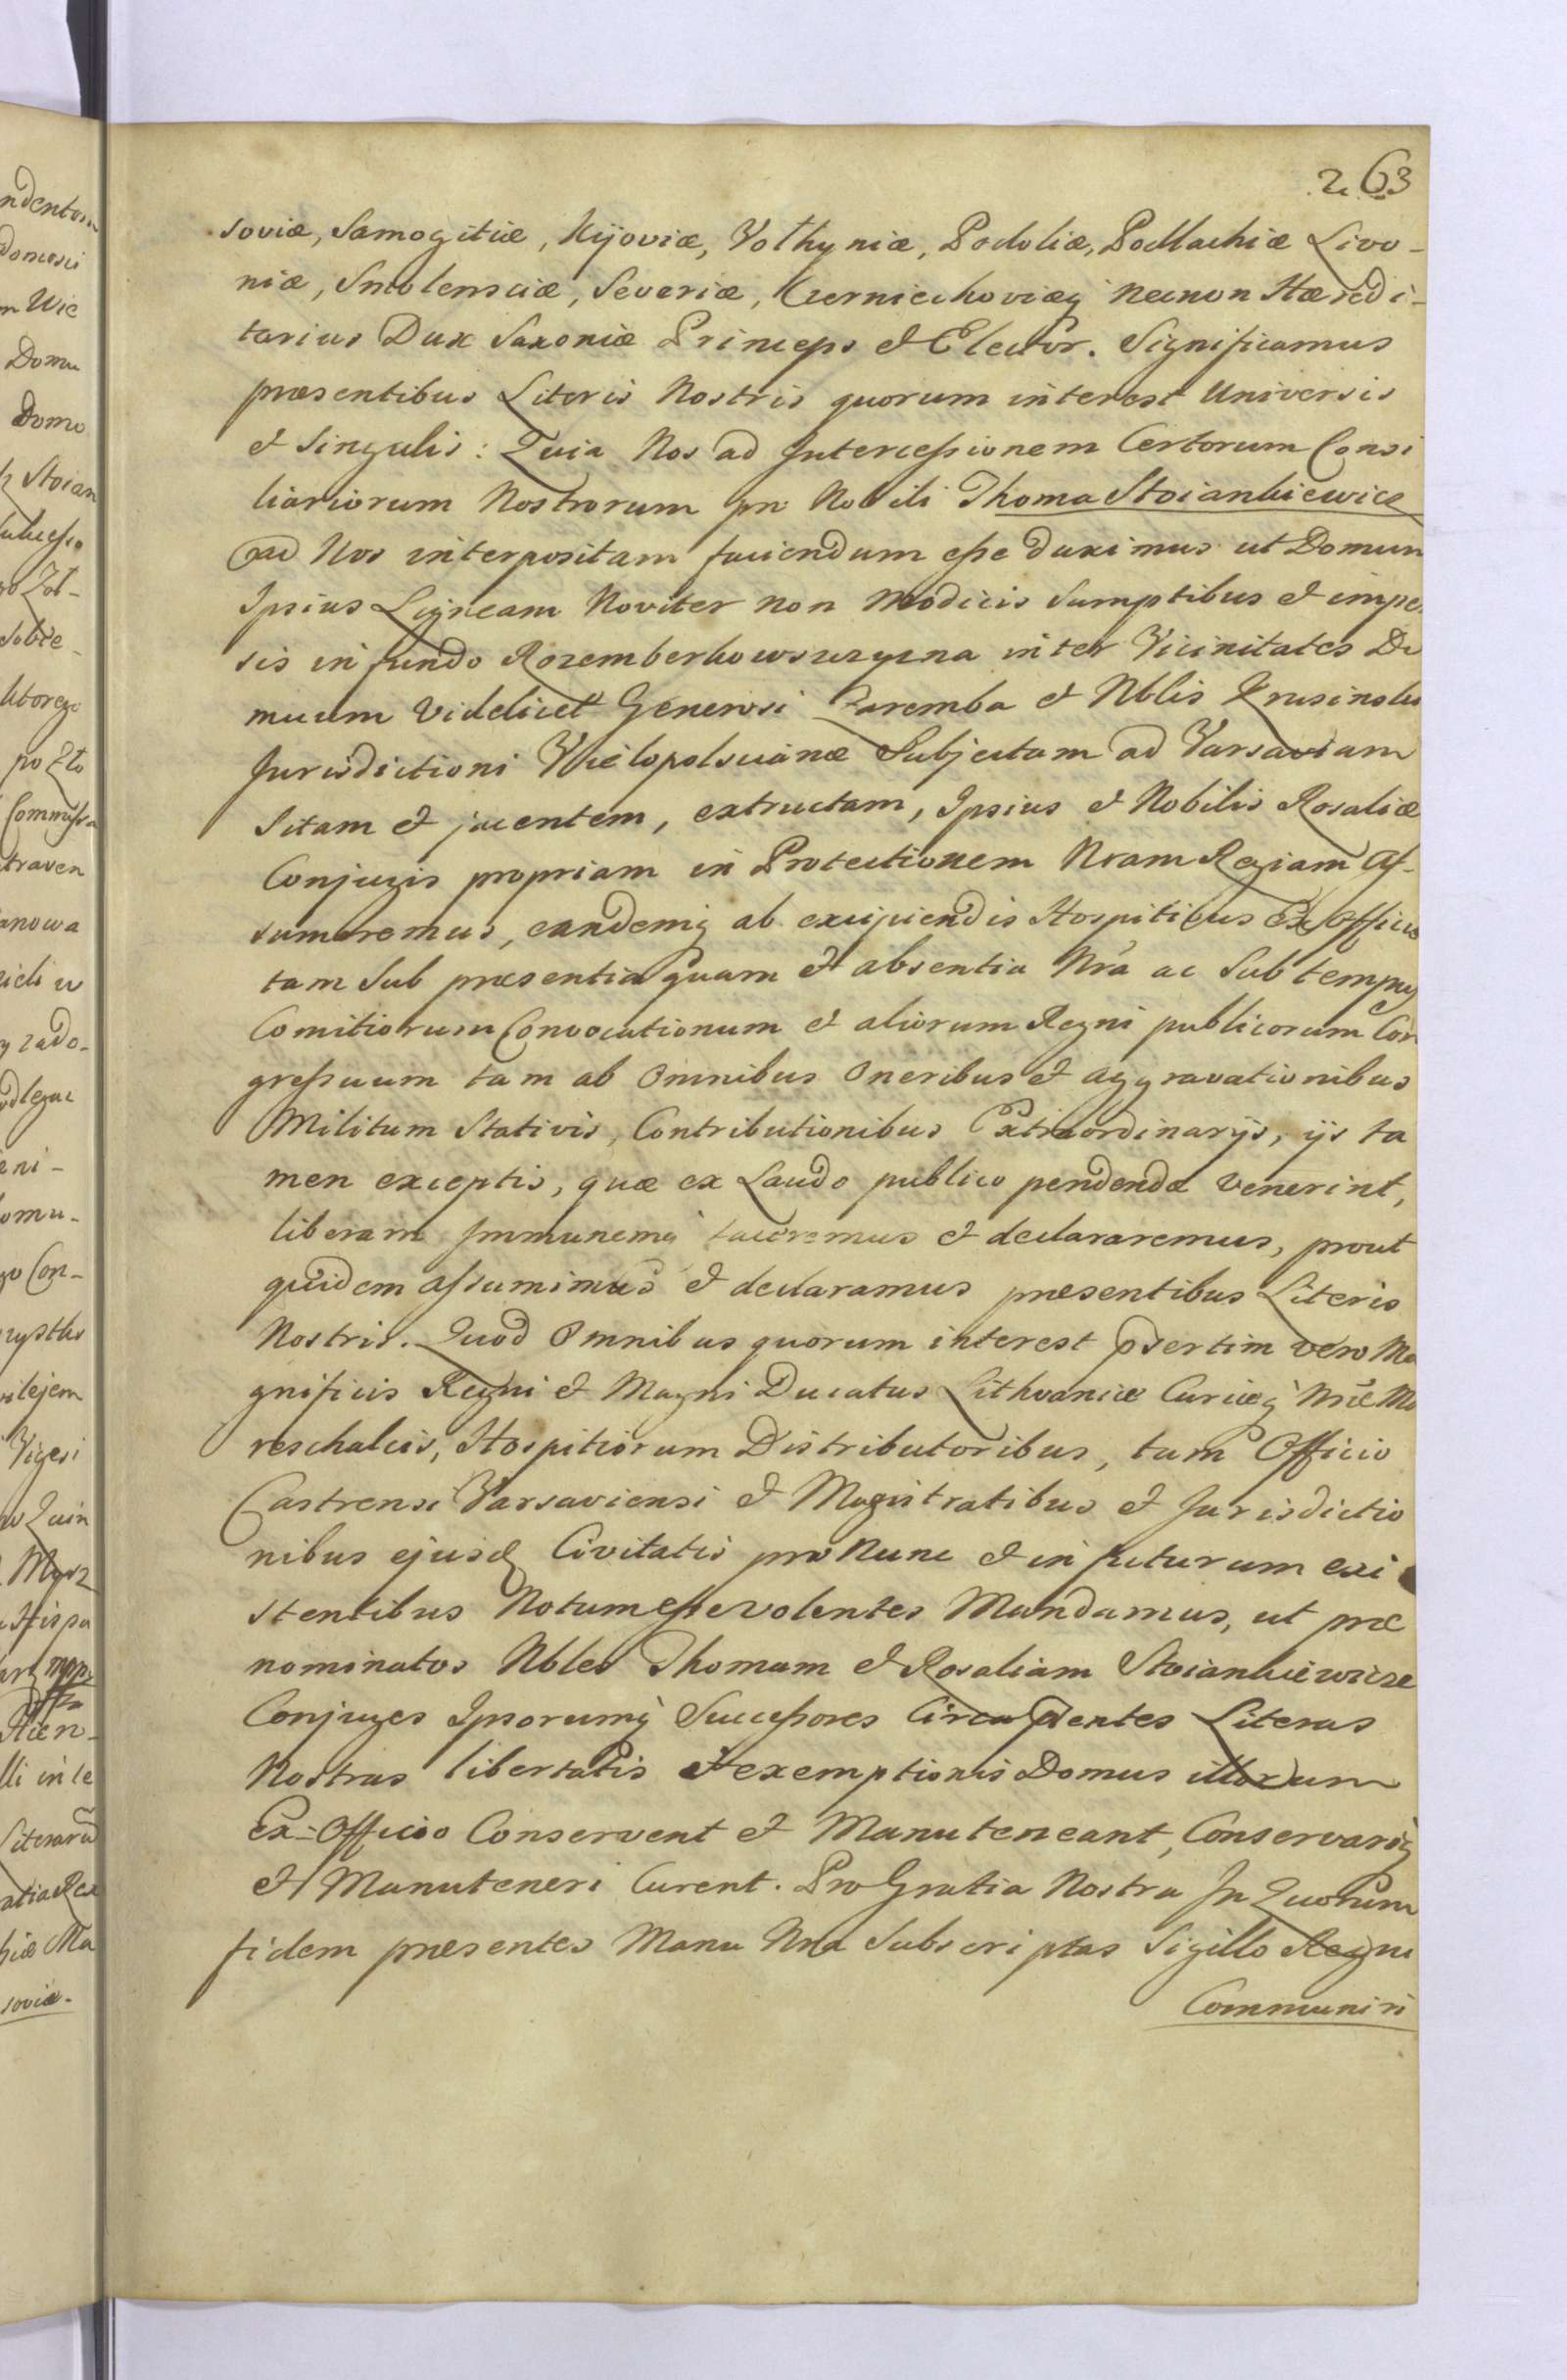 263
soviæ, Samogitiæ, Kijoviæ, Volhyniæ, Podoliæ, Podlachiæ Livo-
niæ, Smolensciæ, Severiæ, Czerniechoviæq necnon Hæredi-
tarius Dux Saxoniæ Princeps et Elector. Significamus
præsentibus Literis Nostris quorum interest Universis
et Singulis: Quia Nos ad Intercessionem Certorum Consi
liariorum Nostrorum pro Nobili Thoma Stoiankiewicz
ad Nos interpositam faciendum esse duximus ut Domum
Ipsius Ligneam Noviter non modicis Sumptibus et impe
sis in fundo Rozemberkowszczyzna inter Vicinitates Do
muum videlicet Generosi Zaremba et Nblis Krusinski
Jurisdictioni Wielopolscianæ Subjectam ad Varsaviam
Sitam et jacentem, extructam, Ipsius et Nobilis Rosaliæ
Conjugis propriam in Protectionem Nram Regiam As-
sumeremus, eandemq ab excipiendis Hospitibus Ex Officio
tam Sub præsentia quam et absentia Nra ac Sub tempus
Comitiorum Convocationum et aliorum Regni publicorum Con
gressuum tam ab Omnibus Oneribus et aggravationibus
Militum Stativis, Contributionibus Extraordinarijs, ijs ta
men exceptis, quæ ex Laudo publico pendenda venerint,
liberam Immunemq faceremus et declararemus, prout
quidem assumimus et declaramus præsentibus Literis
Nostris. Quod Omnibus quorum interest psertim vero Ma
gnificis Regni et Magni Ducatus Lithvaniæ Curiæq Nræ Ma
reschalcis, Hospitiorum Distributoribus, tum Officio
Castrensi Varsaviensi et Magistratibus et Jurisdictio
nibus ejusd Civitatis pro Nunc et in futurum exi
stentibus Notum esse volentes Mandamus, ut præ
nominatos Nbles Thomam et Rosaliam Stoiankiewicze
Conjuges Ipsorumq Successores Circa psentes Literas
Nostras libertatis et exemptionis Domus illorum
Ex-Officio Conservent et Manuteneant, Conservariq
et Manuteneri Curent. Pro Gratia Nostra In Quorum
fidem præsentes Manu Nra Subscriptas Sigillo Regni
Communiri